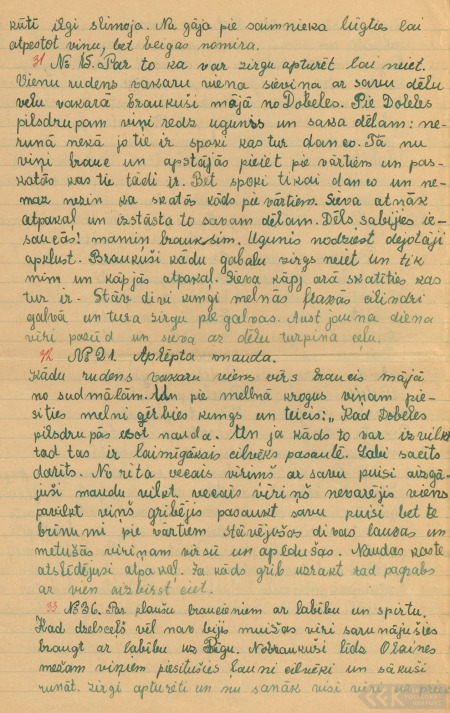 kūtī ilgi slimoja. Nu gāja pie saimnieka lūgties lai
atpestot viņu, bet beigās nomira.
31 № 15. Par to kā var zirgu apturēt lai neiet.
Vienu rudens vakaru viena sieviņa ar savu dēlu
vēlu vakarā braukuši mājā no Dobeles. Pie Dobeles
pilsdrupam viņi redz ugunis un saka dēlam: ne-
runā nekā jo tie ir spoki kas tur danco. Tā nu
viņi brauc un apstājās pieiet pie vārtiem un pas-
katās kas tie tādi ir. Bet spoki tikai danco un ne-
maz nezin ka skatās kāds pie vārtiem. Sieva atnāk
atpakaļ un izstāsta to savam dēlam. Dēls sabijies ie-
saucās! mamiņ brauksim. Ugunis nodziest dejotāji
apklust. Braukuši kādu gabalu zirgs neiet un tik
min un kāpjās atpakaļ. Sieva kāpj ārā skatīties kas
tur ir. Stāv divi kungi melnās frakās cilindri
galvā un tura zirgu pie galvas. Aust jauna diena
vīri pazūd un sieva ar dēlu turpina ceļu.
32 № 21. Aplēpta nauda.
Kādu rudens vakaru viens vīrs braucis mājā
no sudmalām. Un pie mellnā krogus viņam pie-
sities melni ģērbies kungs un teicis: „Kad Dobeles
pilsdrupās esot nauda. Un ja kāds to var izvilkt
tad tas ir laimīgākais cilvēks pasaulē. Labi sacīts
darīts. No rīta vecais vīriņš ar savu puisi aizgā-
juši naudu vilkt, vecais vīriņš nevarējis viens
pavilkt viņš gribējis pasaukt savu puisi bet te
brīnumi pie vārtiem stāvējušas divas lauvas un
metušās vīriņam virsū un aplēdušas. Naudas kaste
atslīdējusi atpakaļ. Ja kāds grib uzrakt tad pagrabs
ar vien aizbirst ciet.
33 № 36. Par klaušu braucieniem ar labību un spirtu.
Kad dzelsceļš vēl nav bijis muižas vīri sarunājušies
braugt ar labību uz Rīgu. Nobraukuši līdz Olaines
mežam viņiem piesitušies ļauni cilvēki un sākuši
runāt. Zirgi apturēti un nu sanāk visi vīri un